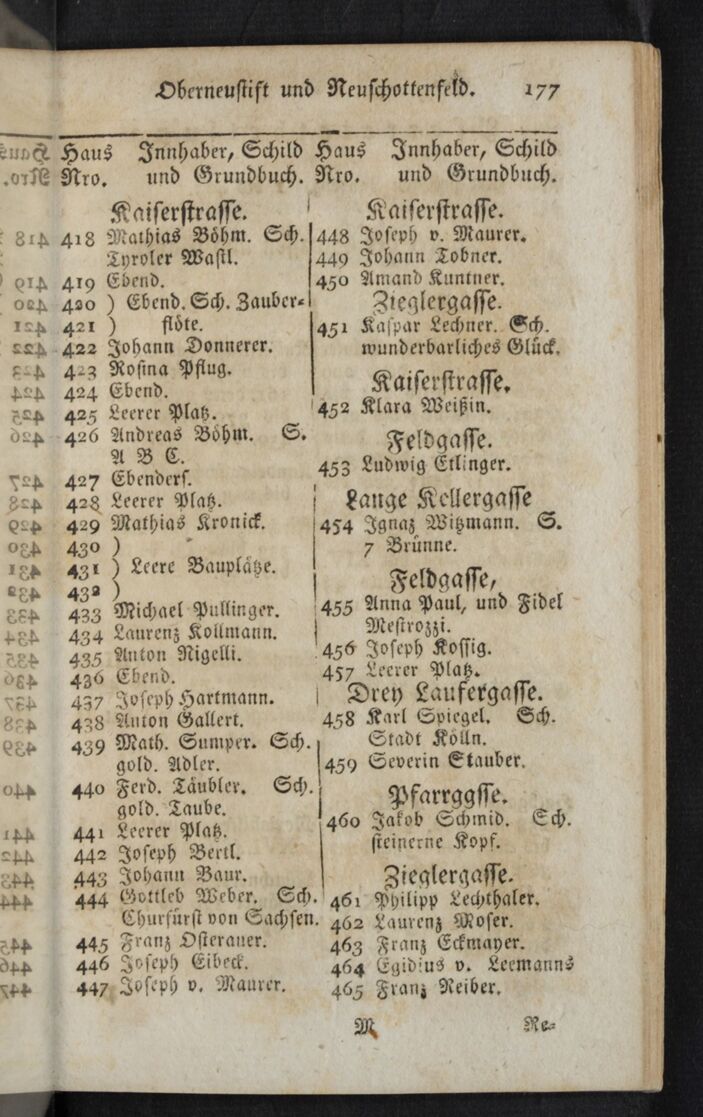 Oberneustift und Neuschottenfeld. 177
Haus Innhaber, Schild
Nro. und Grundbuch.
Kaiserstrasse.
418 Mathias Böhm. Sch.
Tyroler Wastl.
419 Ebend.
420 ) Ebend. Sch. Zauber-
421 ) flöte.
422 Johann Donnerer.
423 Rosina Pflug.
424 Ebend.
425 Leerer Platz.
426 Andreas Böhm. S.
A B C.
427 Ebenders.
428 Leerer Platz.
429 Mathias Kronick.
430 )
431 ) Leere Bauplätze.
432 )
433 Michael Pullinger.
434 Laurenz Kollmann.
435 Anton Nigelli.
436 Ebend.
437 Joseph Hartmann.
438 Anton Gallert.
439 Math. Sumper. Sch.
gold. Adler.
440 Ferd. Täubler. Sch.
gold. Taube.
441 Leerer Platz.
442 Joseph Bertl.
443 Johann Baur.
444 Gottleb Weber. Sch.
Churfürst von Sachsen.
445 Franz Osterauer.
446 Joseph Eibeck.
447 Joseph v. Maurer.
Haus Innhaber, Schild
Nro. und Grundbuch.
Kaiserstrasse.
448 Joseph v. Maurer.
449 Johann Tobner.
450 Amand Kuntner.
Zieglergasse.
451 Kaspar Lechner. Sch.
wunderbarliches Glück.
Kaiserstrasse.
452 Klara Weißin.
Feldgasse.
453 Ludwig Etlinger.
Lange Kellergasse
454 Ignaz Witzmann. S.
7 Brünne.
Feldgasse,
455 Anna Paul, und Fidel
Mestrozzi.
456 Joseph Kossig.
457 Leerer Platz.
Drey Laufergasse.
458 Karl Spiegel. Sch.
Stadt Kölln.
459 Severin Stauber.
Pfarrggsse.
460 Jakob Schmid. Sch.
steinerne Kopf.
Zieglergasse.
461 Philipp Lechthaler.
462 Laurenz Moser.
463 Franz Eckmayer.
464 Egidius v. Leemanns
465 Franz Reiber.
M Re-